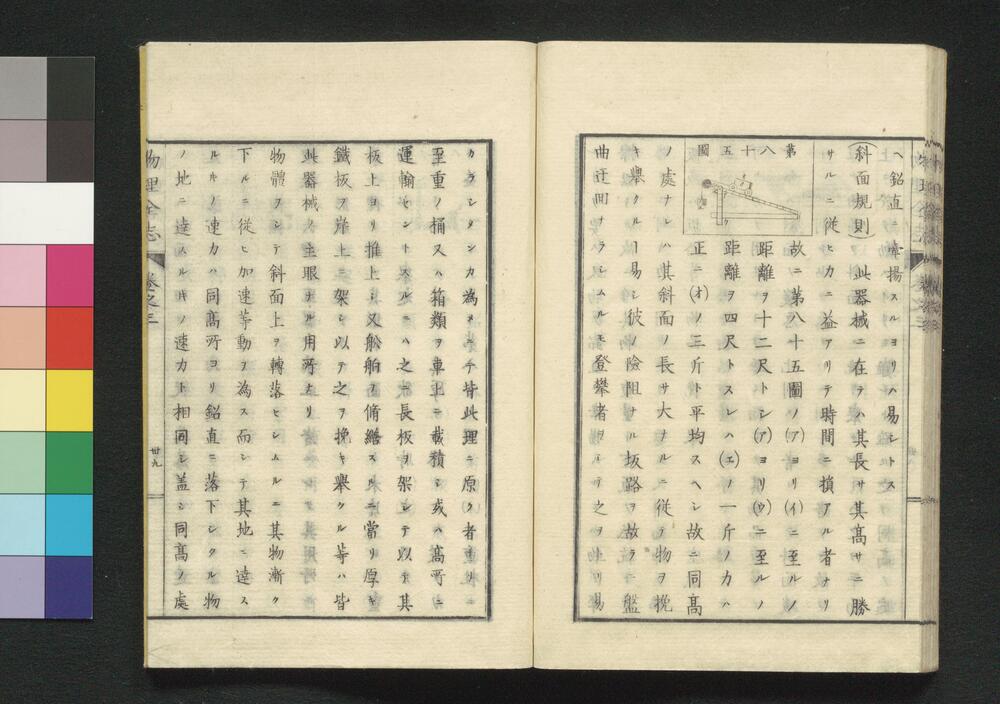 ヘ鉛直ニ牽揚スルヨリハ易シトス
(斜面規則) 此器械ニ在テハ其長サ其高サニ勝
サルニ従ヒカニ益アリテ時間ニ損アル者ナリ
第八十五図
故ニ第八十五圖ノ(ア)ヨリ(イ)ニ至ルノ
距離ヲ十二尺トシ(ア)ヨリ(ウ)ニ至ルノ
距離ヲ四尺トスレハ(エ)ノ一斤ノカハ
正ニ(オ)ノ三斤ト平均スヘシ故ニ同高
ノ處ナレハ其斜面ノ長サ大ナルニ従テ物ヲ挽
キ舉クルヿ易シ彼ノ險阻ナル坂路ヲ故ラニ盤
曲迂回ナラシムルモ登攀者ヲシテ之ヲ
カラシメンカ為メニテ皆此理ニ原ク者ナリ
至重ノ桶又ハ箱類ヲ車上ニ載積シ或ハ高所ニ
運輸セントスルニハ之ニ長板ヲ架シテ以テ其
板上ヨリ推上シ又舩舶ヲ脩繕スルニ當リ厚キ
鐵板ヲ岸上ニ架シ以テ之ヲ挽キ舉クル等ハ皆
此器械ノ主眼ナル用所ナリ
物體ヲシテ斜面上ヲ轉落セシムルニ其物漸ク
下ルニ從ヒ加速等動ヲ為ス而シテ其地ニ達ス
ルトキノ速力ハ同髙所ヨリ鉛直ニ落下シクル物
ノ地ニ達スルトキノ速力ト相同シ盖シ同髙ノ處
物理全志
卷之三
卅九